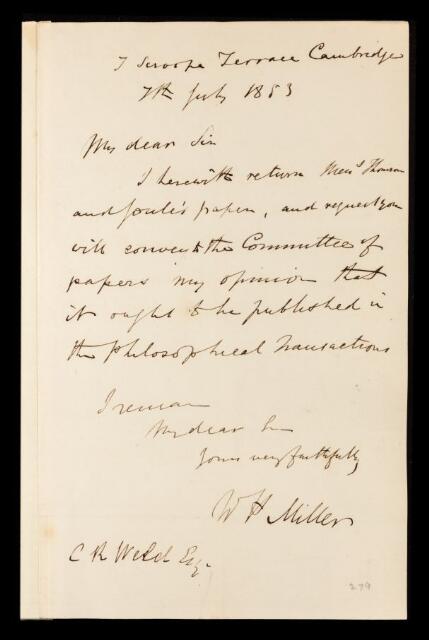 7 Scroope Terrace Cambridge
7th July 1853
My dear Sir
I herewith return Messrs Thomson
and Joule's paper, and request you
will convey to the Committee of
papers my opinion that
it ought to be published in
the Philosophical Transactions
I remain
My dear Sir
Yours very faithfully
W H Miller
C R Weld Esq.
279